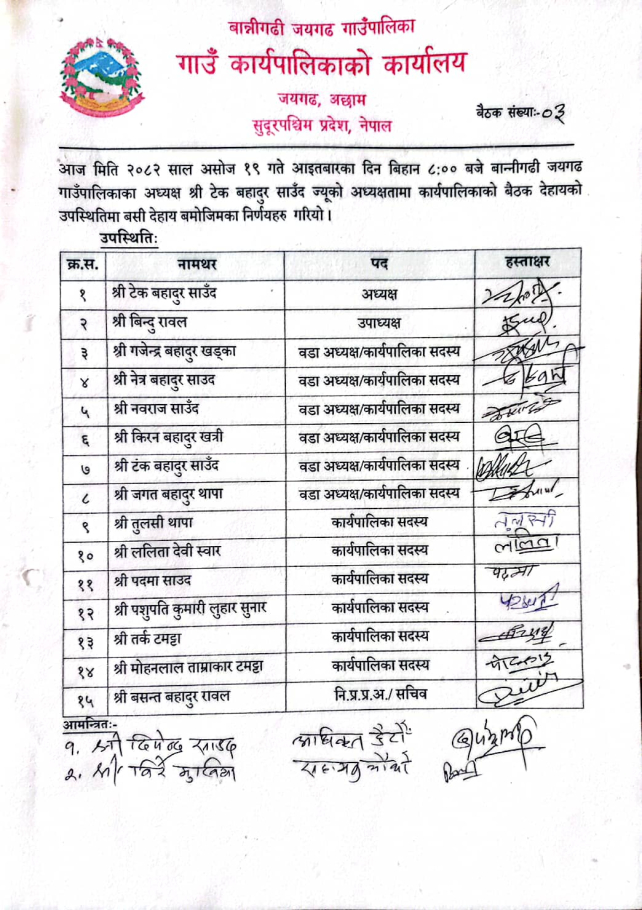 बान्नीगढी जयगढ गाउँपालिका
गाउँ कार्यपालिकाको कार्यालय
जयगढ, अछाम
सुदूरपश्चिम प्रदेश, नेपाल
बैठक संख्याः-०३
आज मिति २०८२ साल असोज १९ गते आइतबारका दिन बिहान ८:०० बजे बान्नीगढी जयगढ
गाउँपालिकाका अध्यक्ष श्री टेक बहादुर साउँद ज्यूको अध्यक्षतामा कार्यपालिकाको बैठक देहायको
उपस्थितिमा बसी देहाय बमोजिमका निर्णयहरु गरियो।
उपस्थितिः
क्र.स. नामथर पद हस्ताक्षर
१ श्री टेक बहादुर साउँद अध्यक्ष
२ श्री बिन्दु रावल उपाध्यक्ष
३ श्री गजेन्द्र बहादुर खड्का वडा अध्यक्ष/कार्यपालिका सदस्य
४ श्री नेत्र बहादुर साउद वडा अध्यक्ष/कार्यपालिका सदस्य
५ श्री नवराज साउँद वडा अध्यक्ष/कार्यपालिका सदस्य
६ श्री किरन बहादुर खत्री वडा अध्यक्ष/कार्यपालिका सदस्य
७ श्री टंक बहादुर साउँद वडा अध्यक्ष/कार्यपालिका सदस्य
८ श्री जगत बहादुर थापा वडा अध्यक्ष/कार्यपालिका सदस्य
९ श्री तुलसी थापा कार्यपालिका सदस्य तुलसी
१० श्री ललिता देवी स्वार कार्यपालिका सदस्य ललिता
११ श्री पदमा साउद कार्यपालिका सदस्य पदमा
१२ श्री पशुपति कुमारी लुहार सुनार कार्यपालिका सदस्य
१३ श्री तर्क टमट्टा कार्यपालिका सदस्य
१४ श्री मोहनलाल ताम्राकार टमट्टा कार्यपालिका सदस्य
१५ श्री बसन्त बहादुर रावल नि.प्र.प्र.अ./ सचिव
आमन्त्रितः-
१. श्री साउद
२. श्री